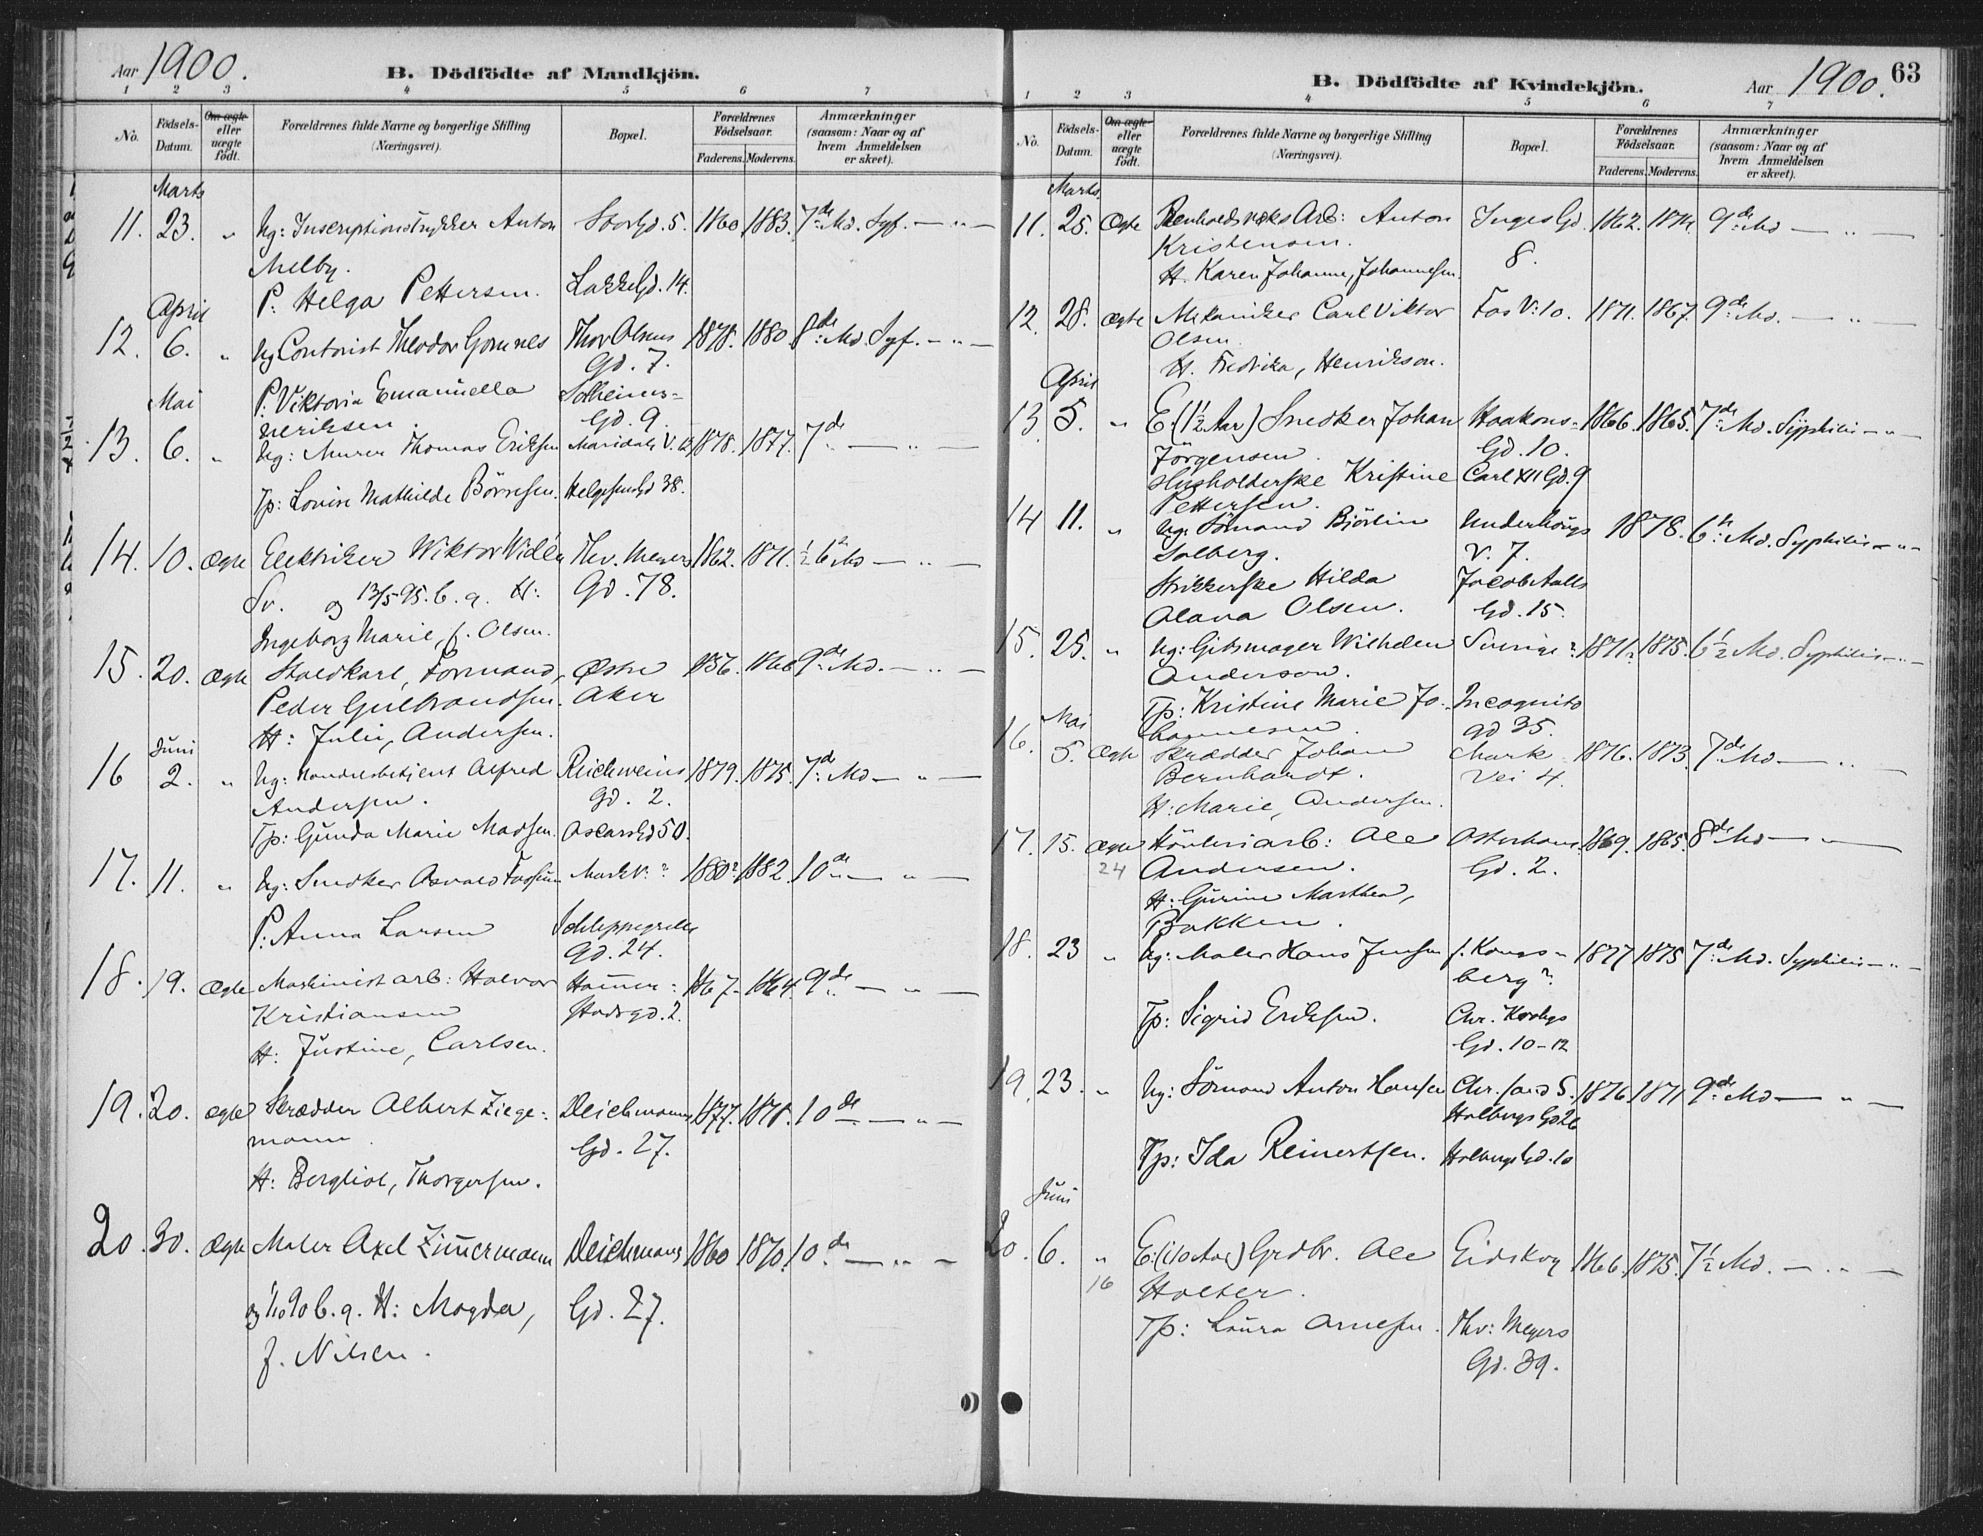 Aar 1900.
B. Dödfödte af Mandkjön.
1 2 3 4 5 6 7
No.
Födsels-
Datum.
Om ægte
eller
uægte
födt.
Forældrenes fulde Navne og borgerlige Stilling
(Næringsvei).
Bopæl.
Forældrenes
Födselsaar.
Faderens. Moderens.
Anmærkninger
(saasom: Naar og af
hvem Anmeldelsen
er skeet).
Marts
11. 23. " Ug: Inscriptionstrykker Anton Storgd. 5. 1860. 1883. 7de Md. Syf. — " —
Melby.
P. Helga Pettersen. LakkeGd. 14.
April
12. 6. " Ug Contorist Theodor Thor Olsens 1878. 1880. 8de Md. Syf. — " —
Gd. 7.
P. Viktoria Emanuella Solheims-
Gd. 9.
Mai
13. 6. " Ug: Murer Thomas Eriksen Maridals V. 1878. 1877. 7de — " —
Tp: Lovise Mathilde Börresen. HelgesensGd 38.
14. 10. Ægte Elektriker Wiktor Widén Thv. Meyers 1862. 1871. Md — " —
Sv. og 13/5 95. b. g. H: Gd. 78.
Ingeborg Marie, f. Olsen.
15. 20. Ægte Staldkarl, Formand, Østre 1856. 9de Md. — " —
Peder Gulbrandsen. Aker
H: Julie, Andersen.
Juni
16 2. " Ug: Handelsbetjent Alfred Reichweins 1879. 1875. 7de Md — " —
Andersen. Gd. 2.
Tp: Gunda Marie Madsen. OscarsGd 50.
17. 11. " Ug: Snedker Osvald Fossum MarkV. ? 1880? 1882. 10de — " —
P: Anna Larsen Schleppegrells
Gd. 24.
18. 19. Ægte Maskinist arb: Halvor Hammer- 1867. 1864. 9de — " —
Kristiansen stadsgd. 2.
H: Justine, Carlsen.
19. 20. Ægte Skrædder Albert Ziege- Deichmans 1877. 1878. 10de — " —
mann. Gd. 27.
H: Bergliot, Thorgersen.
20. 30. Ægte Maler Axel Zimmermann Deichmans 1860 1870. 10de — " —
og 1/10 90 b. g. H: Magda, Gd. 27.
f. Nilsen.
B. Dödfödte af Kvindekjön.
Aar 1900. 63
1 2 3 4 5 6 7
No.
Födsels-
Datum.
Om ægte
eller
uægte
födt.
Forældrenes fulde Navne og borgerlige Stilling
(Næringsvei).
Bopæl.
Forældrenes
Födselsaar.
Faderens. Moderens.
Anmærkninger
(saasom: Naar og af
hvem Anmeldelsen
er skeet).
Marts
11. 25. Ægte Renholdsvæks Arb: Anton Inges Gd. 1862. 1874. 9de Md — " —
Kristensen. 8.
H. Karen Johanne, Johannesen.
12. 28. Ægte Mekaniker Carl Viktor Fos V: 10. 1871. 1867. 9de Md. — " —
Olsen.
H. Fredrika, Henrikson.
April
13. 5. " E. (1½ Aar) Snedker Johan Haakons- 1866. 1865. 7de Md. Syphilis — " —
Jörgensen. Gd. 10.
Husholderske Kristine Carl XII Gd. 9
Pettersen.
14 11. " Ug: Sömand Björlin Underhaugs 1878. 6te Md. Syphilis — " —
Solberg. V. 7.
Strikkerske Hilda Jacob Aalls
Olava Olsen. Gd. 15.
15. 25. " Ug: Gibsmager Wilhelm Sverige? 1871? 1875. 6½ Md. Syphilis — " —
Anderson.
Tp: Kristine Marie Jo- Incognito
hannesen. gd 35.
Mai
16. 5. Ægte Skrædder Johan Mark- 1876. 1873. 7de Md — " —
Bernhardt. Vei 4.
H: Marie, Andersen.
17. 15. Ægte Hönleriarb: Ole Osterhaus 1869. 1865. 8de Md — " —
24 Andersen. Gd. 2.
H: Gurine Marthea,
Bakken.
18. 23 " Ug: Maler Hans Jensen f. Kongs- 1877 1875 7de Md. Syphilis — " —
berg?
Tp: Sigrid Eriksen. Chr. Krohgs
Gd. 10-12
19. 23. " Ug: Sömand Anton Hansen Chr.sand S. 1876. 1871 9de Md — " —
HolbergsGd 26
Tp: Ida Reinertsen. HolbergsGd. 10
Juni
20. 6. " E: (i 10 Aar) Grdbr. Ole Eidskog 1866. 1875. 7½ Md. — " —
16 Holter.
Tp: Laura Arnesen. Thv: Meyers
Gd. 39.